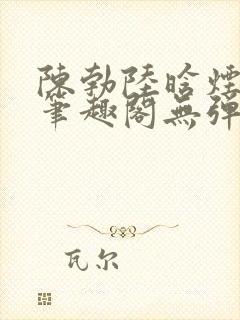 陳勃陸晗煙
筆趣閣無彈
瓦尔